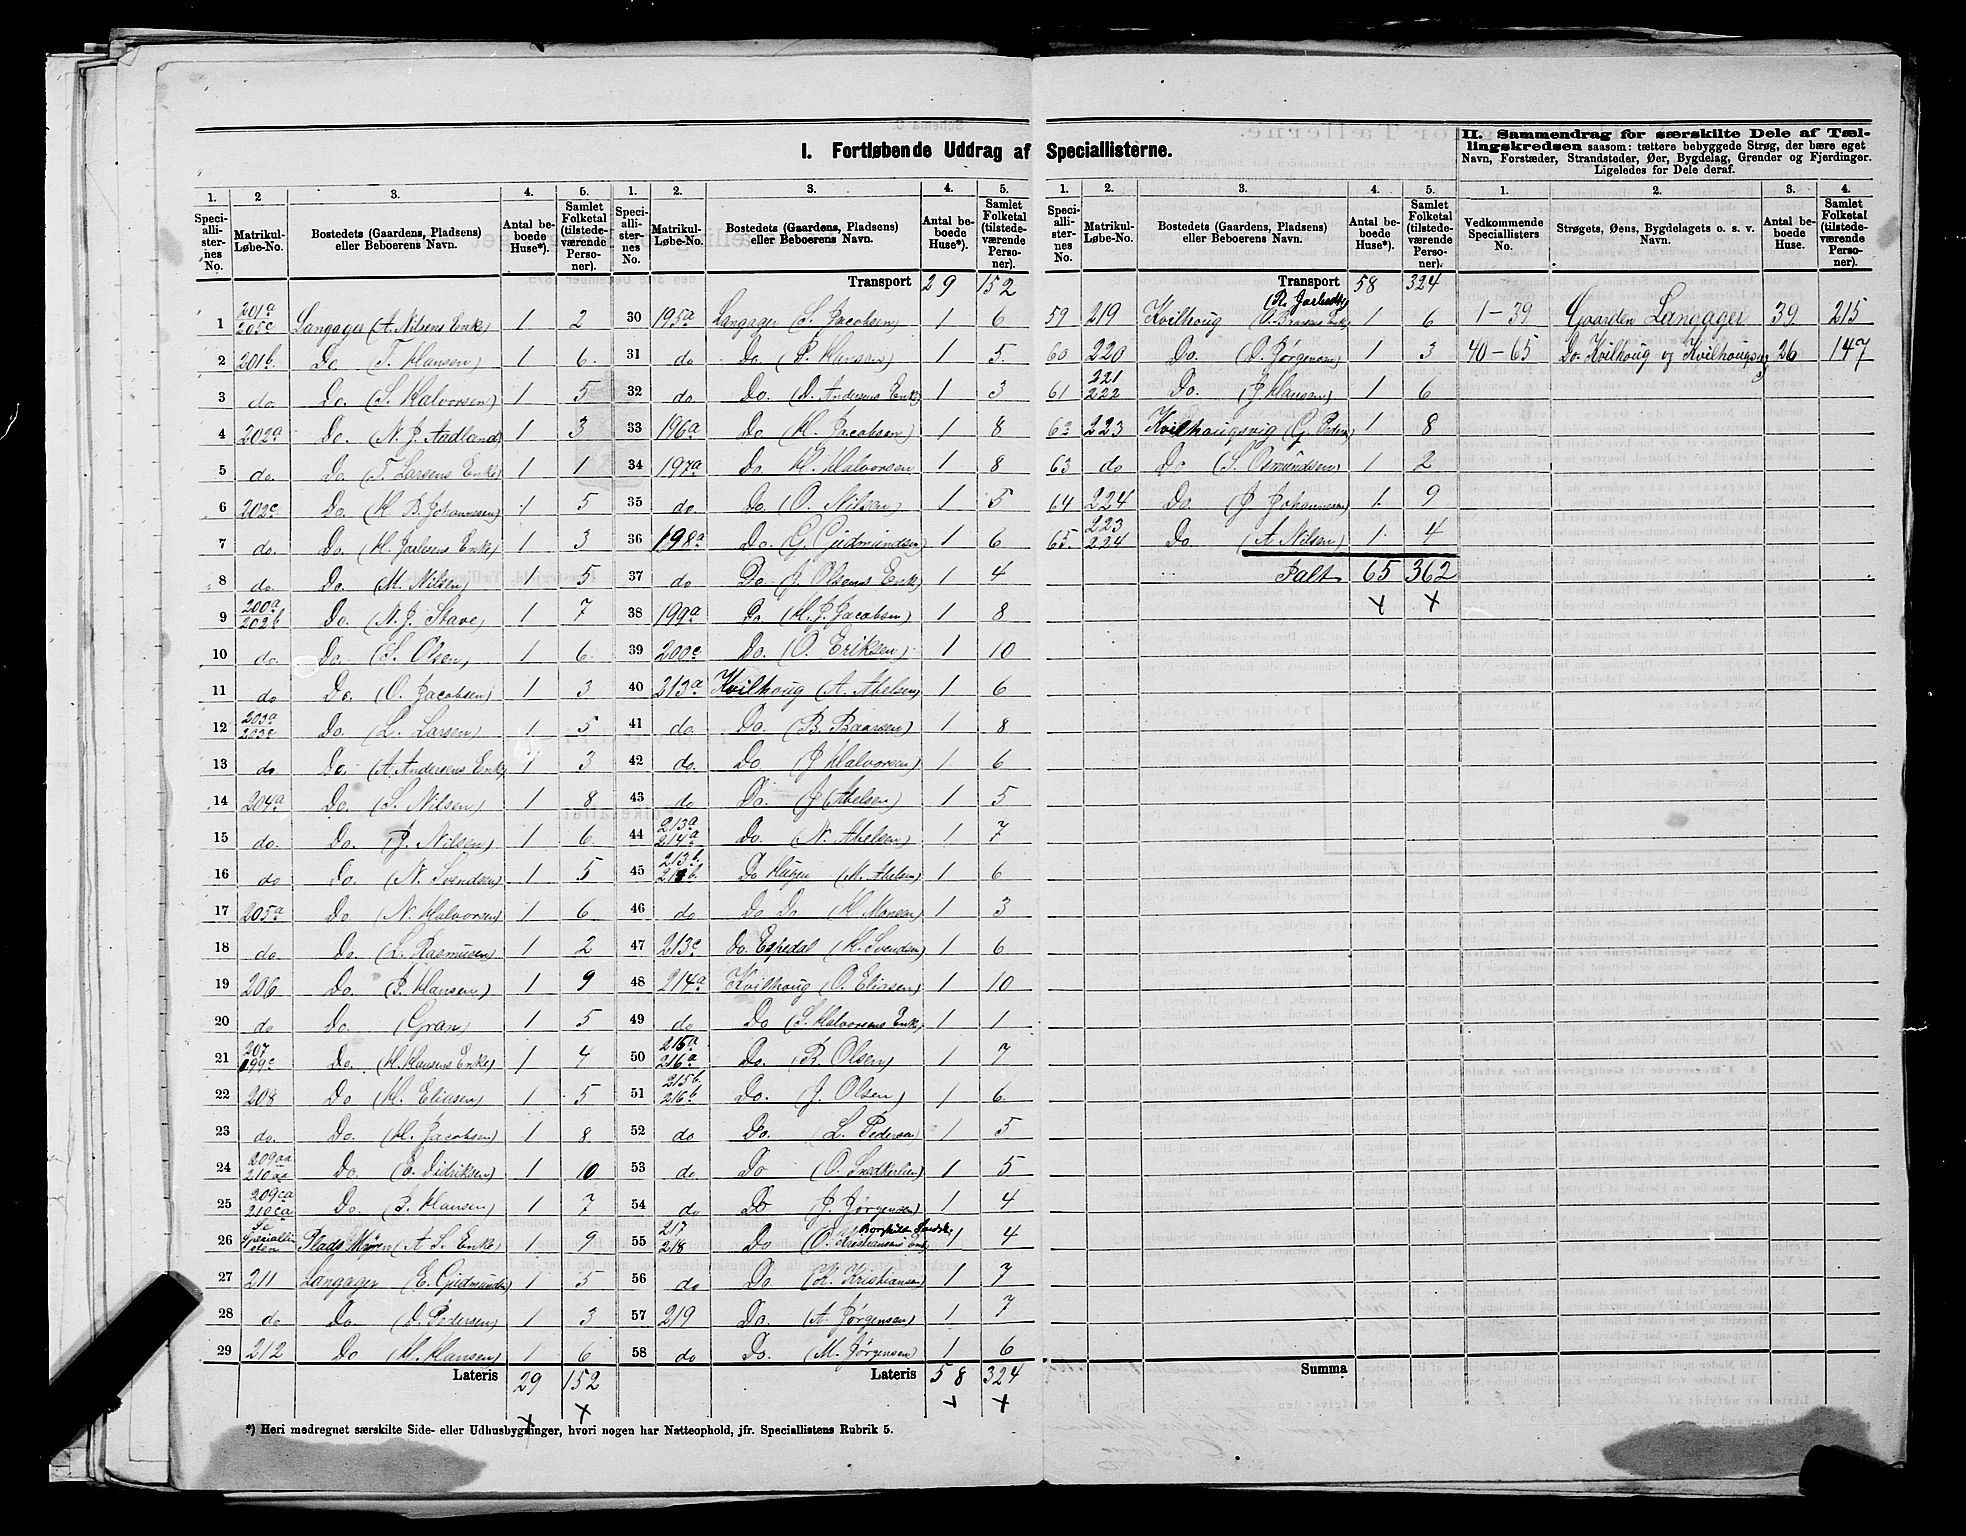 I. Fortløbende Uddrag af Speciallisterne.
II. Sammendrag for særskilte Dele af Tæl-
lingskredsen saasom: tættere bebyggede Strøg, der bære eget
Navn, Forstæder, Strandsteder, Øer, Bygdelag, Grender og Fjerdinger.
Ligeledes for Dele deraf.
1. 2 3. 4. 5.
Speciallisternes No. Matrikul-Løbe-No. Bostedets (Gaardens, Pladsens) eller Beboerens Navn. Antal beboede Huse*). Samlet Folketal (tilstedeværende Personer).
1 201a 205c Langager (A. Nilsens Enke) 1 2
2 201b. Do (T. Hansen) 1 6
3 do. Do. (S. Halvorsen) 1 5
4 202a Do. (N. J. Aadland) 1 3
5 do. Do. (T. Larsens Enke) 1 1
6 202c Do. (H. B. Johannesen) 1 5
7 do. Do. (H. Enke) 1 3
8 do. Do. (M. Nilsen) 1 5
9 200a 202b Do. (N. J. Stave) 1 7
10 do. Do. (S. Olsen) 1 6
11 do Do. (O. Jacobsen) 1 3
12 203a 203c Do. (L. Larsen) 1 5
13 do Do. (A. Andersens Enke) 1 3
14 204a Do. (S. Nilsen) 1 8
15 do. Do. (J. Nilsen) 1 6
16 do Do. (N. Svendsen) 1 5
17 205a Do (N. Halvorsen) 1 6
18 do. Do. (L. Rasmusen) 1 2
19 206 Do. (P. Hansen) 1 9
20 do Do. (Gran) 1 5
21 207 199c Do. (H. Hansens Enke) 1 4
22 208 Do (H. Eliasen) 1 5
23 do. Do. (H. Jacobsen) 1 8
24 209aa 210aa Do. (E. Didriksen) 1 10
25 209ca 210ca Do. (B. Hansen) 1 7
26 Se Speciallisten Plads (A. S. Enke) 1 9
27 211 Langager (E. Gudmunds) 1 5
28 do Do (D. Pedersen) 1 3
29 212 Do (H. Hansen) 1 6
Lateris 29 152
1. 2. 3. 4. 5.
Speciallisternes No. Matrikul-Løbe-No. Bostedets (Gaardens, Pladsens) eller Beboerens Navn. Antal beboede Huse*). Samlet Folketal (tilstedeværende Personer).
Transport 29 152
30 195a Langager (S. Jacobsen) 1 6
31 do Do. (P. Hansen) 1 5
32 do. Do. (D. Andersens Enke) 1 3
33 196a Do (H. Jacobsen) 1 8
34 197a Do. H. Halvorsen 1 8
35 do. Do (O. Nilsen) 1 5
36 198a Do. (G. Gudmundsen) 1 6
37 do Do (J. Olsens Enke) 1 4
38 199a Do (H. J. Jacobsen) 1 8
39 200c Do. (O. Eriksen) 1 10
40 213a Kvilhoug (A. Abelsen) 1 6
41 do. Do. (B. Baarsen) 1 8
42 do. Do (J Halvorsen) 1 6
43 do Do. (J Abelsen) 1 5
44 213a 214a Do. (N. Abelsen) 1 7
45 213b. Do Hagen (M. Abelsen) 1 6
46 do Do Do (H Monsen) 1 3
47 213c Do. Espedal (H. Svendsen) 1 6
48 214a Kvilhoug (O. Eliasen) 1 10
49 do Do (S. Halvorsens Enke) 1 1
50 215a 216a Do. (B. Olsen) 1 7
51 215b. 216b Do. (J. Olsen) 1 6
52 do Do. (L. Pedersen) 1 5
53 do Do (O. Snedkerlien) 1 5
54 do Do (J. Jørgensen) 1 4
55 217 218 Do (O. Kristiansens Enke) 1 4
56 do Do (K. Kristiansen) 1 7
57 219 Do. (A. Jørgensen) 1 7
58 do Do. (M. Jørgensen) 1 6
Lateris 58 324
1. 2. 3. 4. 5.
Speciallisternes No. Matrikul-Løbe-No. Bostedets (Gaardens, Pladsens) eller Beboerens Navn. Antal beboede Huse*). Samlet Folketal (tilstedeværende Personer).
Transport 58 324
59 219 Kvilhoug 1 6
60 220 Do. (D. Jørgensen) 1 3
61 221 222 Do. (J Hansen) 1 6
62 223 Kvilhougsvig (G. Peders) 1 8
63 do Do (S. Osmundsen) 1 2
64 224 Do. (J Johannesen) 1 9
65. 223 224 Do. (A Nilsen) 1 4
Ialt 65 362
Summa
1. 2. 3. 4.
Vedkommende Speciallisters No. Strøgets, Øens, Bygdelagets o. s. v. Navn. Antal beboede Huse. Samlet Folketal (tilstedeværende Personer).
1-39 Gaarden Langager 39 215
40-65 Do. Kvilhoug og Kvilhougsvig 26 147
*) Heri medregnet særskilte Side- eller Udhusbygninger, hvori nogen har Natteophold, jfr. Speciallistens Rubrik 5.